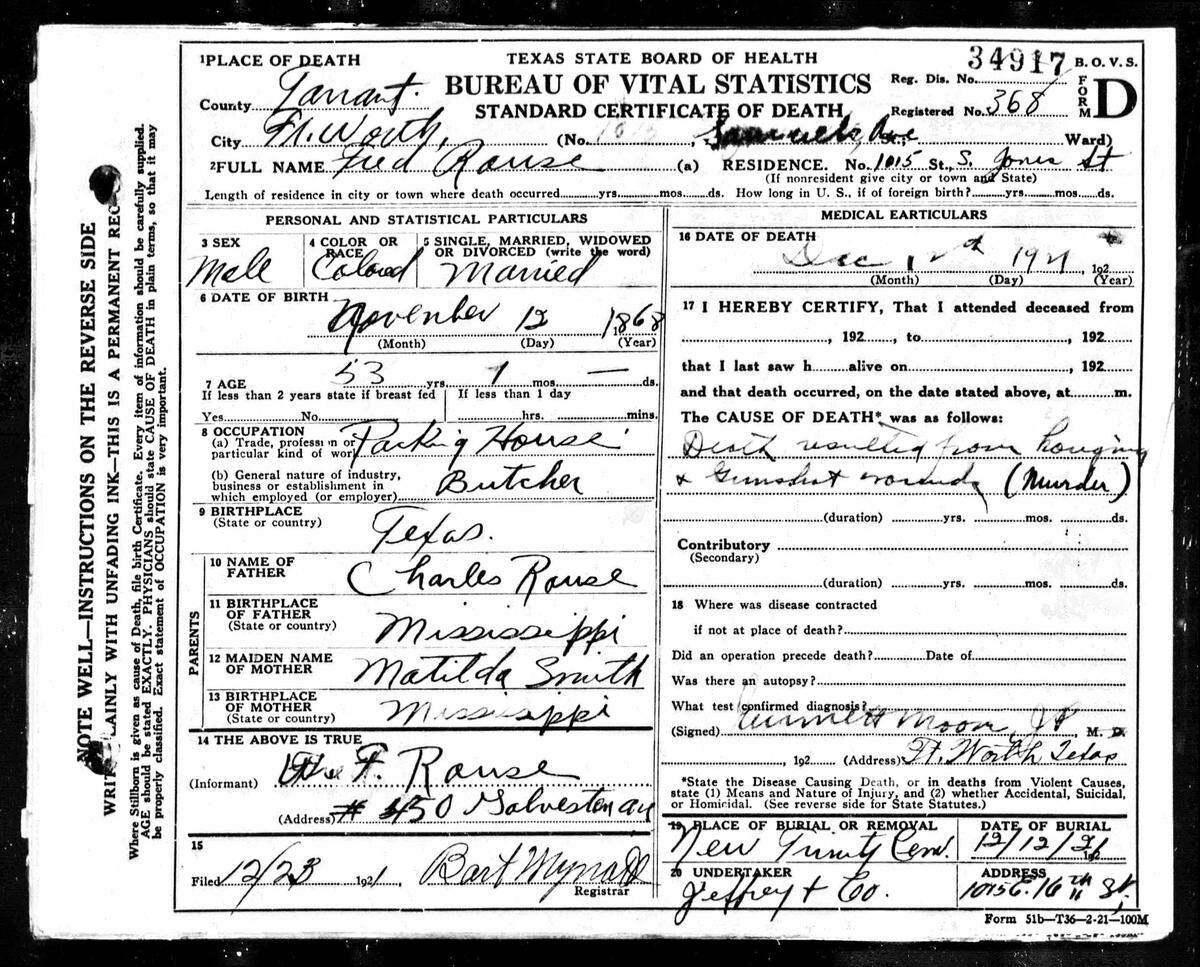 ¹PLACE OF DEATH
TEXAS STATE BOARD OF HEALTH
34917 B. O. V. S.
BUREAU OF VITAL STATISTICS
Reg. Dis. No.
FORM D
County Tarrant.
STANDARD CERTIFICATE OF DEATH
Registered No. 368
City Ft. Worth, (No. Samuels Ave St., Ward)
²FULL NAME Fred Rouse (a) RESIDENCE. No. 1015 St., S. Jones St
(If nonresident give city or town and State)
Length of residence in city or town where death occurred yrs. mos. ds. How long in U. S., if of foreign birth? yrs. mos. ds.
PERSONAL AND STATISTICAL PARTICULARS
3 SEX
Male
4 COLOR OR RACE
Colored
5 SINGLE, MARRIED, WIDOWED
OR DIVORCED (write the word)
Married
6 DATE OF BIRTH
November 12 1868
(Month) (Day) (Year)
7 AGE 53 yrs. 1 mos. — ds.
If less than 2 years state if breast fed
Yes No
If less than 1 day
hrs. mins.
8 OCCUPATION
(a) Trade, profession or
particular kind of work Packing House
(b) General nature of industry,
business or establishment in
which employed (or employer) Butcher
9 BIRTHPLACE
(State or country) Texas.
PARENTS
10 NAME OF
FATHER Charles Rouse
11 BIRTHPLACE
OF FATHER
(State or country) Mississippi
12 MAIDEN NAME
OF MOTHER Matilda Smith
13 BIRTHPLACE
OF MOTHER
(State or country) Mississippi
14 THE ABOVE IS TRUE
(Informant) F. Rouse
(Address) # 450 Galveston av
15
Filed 12/23 1921, Bart Mynatt
Registrar
MEDICAL EARTICULARS
16 DATE OF DEATH
Dec 1921, 192
(Month) (Day) (Year)
17 I HEREBY CERTIFY, That I attended deceased from
, 192 , to , 192
that I last saw h alive on , 192
and that death occurred, on the date stated above, at m.
The CAUSE OF DEATH* was as follows:
Death resulted from hanging
& Gunshot wounds (Murder)
(duration) yrs. mos. ds.
Contributory
(Secondary)
(duration) yrs. mos. ds.
18 Where was disease contracted
if not at place of death?
Did an operation precede death? Date of
Was there an autopsy?
What test confirmed diagnosis?
(Signed) Emmett Moore, JP M. D.
, 192 (Address) Ft. Worth Texas
*State the Disease Causing Death, or in deaths from Violent Causes,
state (1) Means and Nature of Injury, and (2) whether Accidental, Suicidal,
or Homicidal. (See reverse side for State Statutes.)
19 PLACE OF BURIAL OR REMOVAL
New Trinity Cem.
DATE OF BURIAL
12/12/21
20 UNDERTAKER
Jeffrey & Co.
ADDRESS
Form 51b—T36—2-21—100M
NOTE WELL—INSTRUCTIONS ON THE REVERSE SIDE
PLAINLY WITH UNFADING INK—THIS IS A PERMANENT
Where Stillborn is given as cause of Death, file birth Certificate. Every item of information should be carefully supplied.
AGE should be stated EXACTLY. PHYSICIANS should state CAUSE OF DEATH in plain terms, so that it may
be properly classified. Exact statement of OCCUPATION is very important.